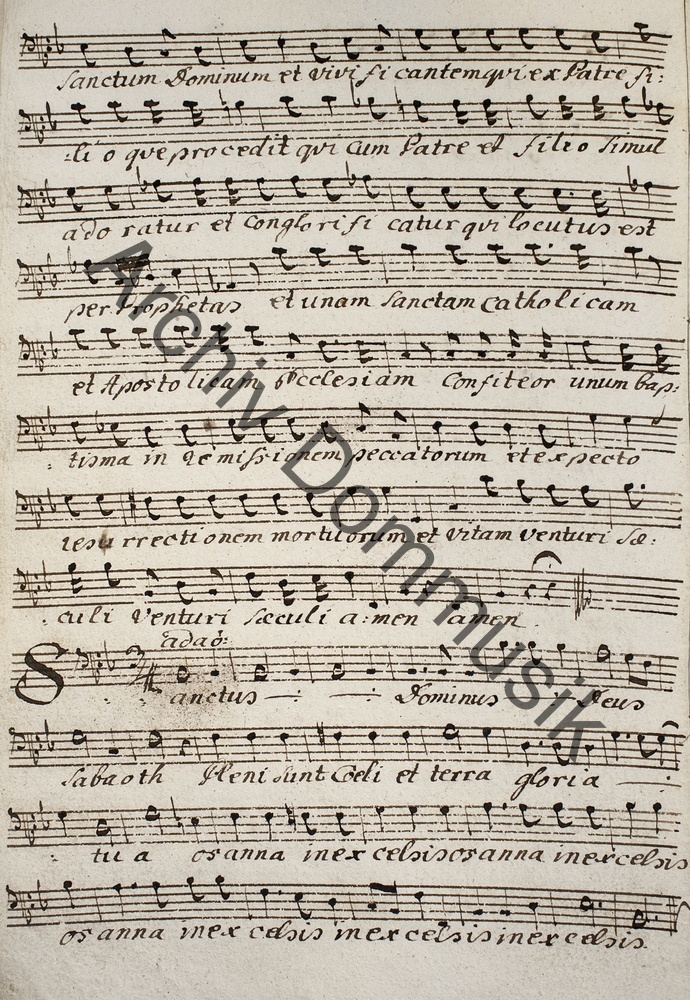 Sanctum Dominum et vivi fi cantem qui ex Patre fi:
:li o que procedit qui cum Patre et filio simul
ado ratur et conglori fi catur qui locutus est
per Prophetas et unam sanctam catholicam
et Aposto licam Ecclesiam Confiteor unum bap:
:tisma in Re missionem peccatorum et expecto
resu rrectionem mortuorum et vitam venturi sæ:
:culi venturi sæculi a:men amen
adaõ:
Sanctus —:— —: Dominus —:— Deus
sabaoth Pleni sunt Cœli et terra gloria —:
: tu a osanna in ex celsis osanna in excelsis
osanna in ex celsis in ex celsis in excelsis.
Archiv Dommusik